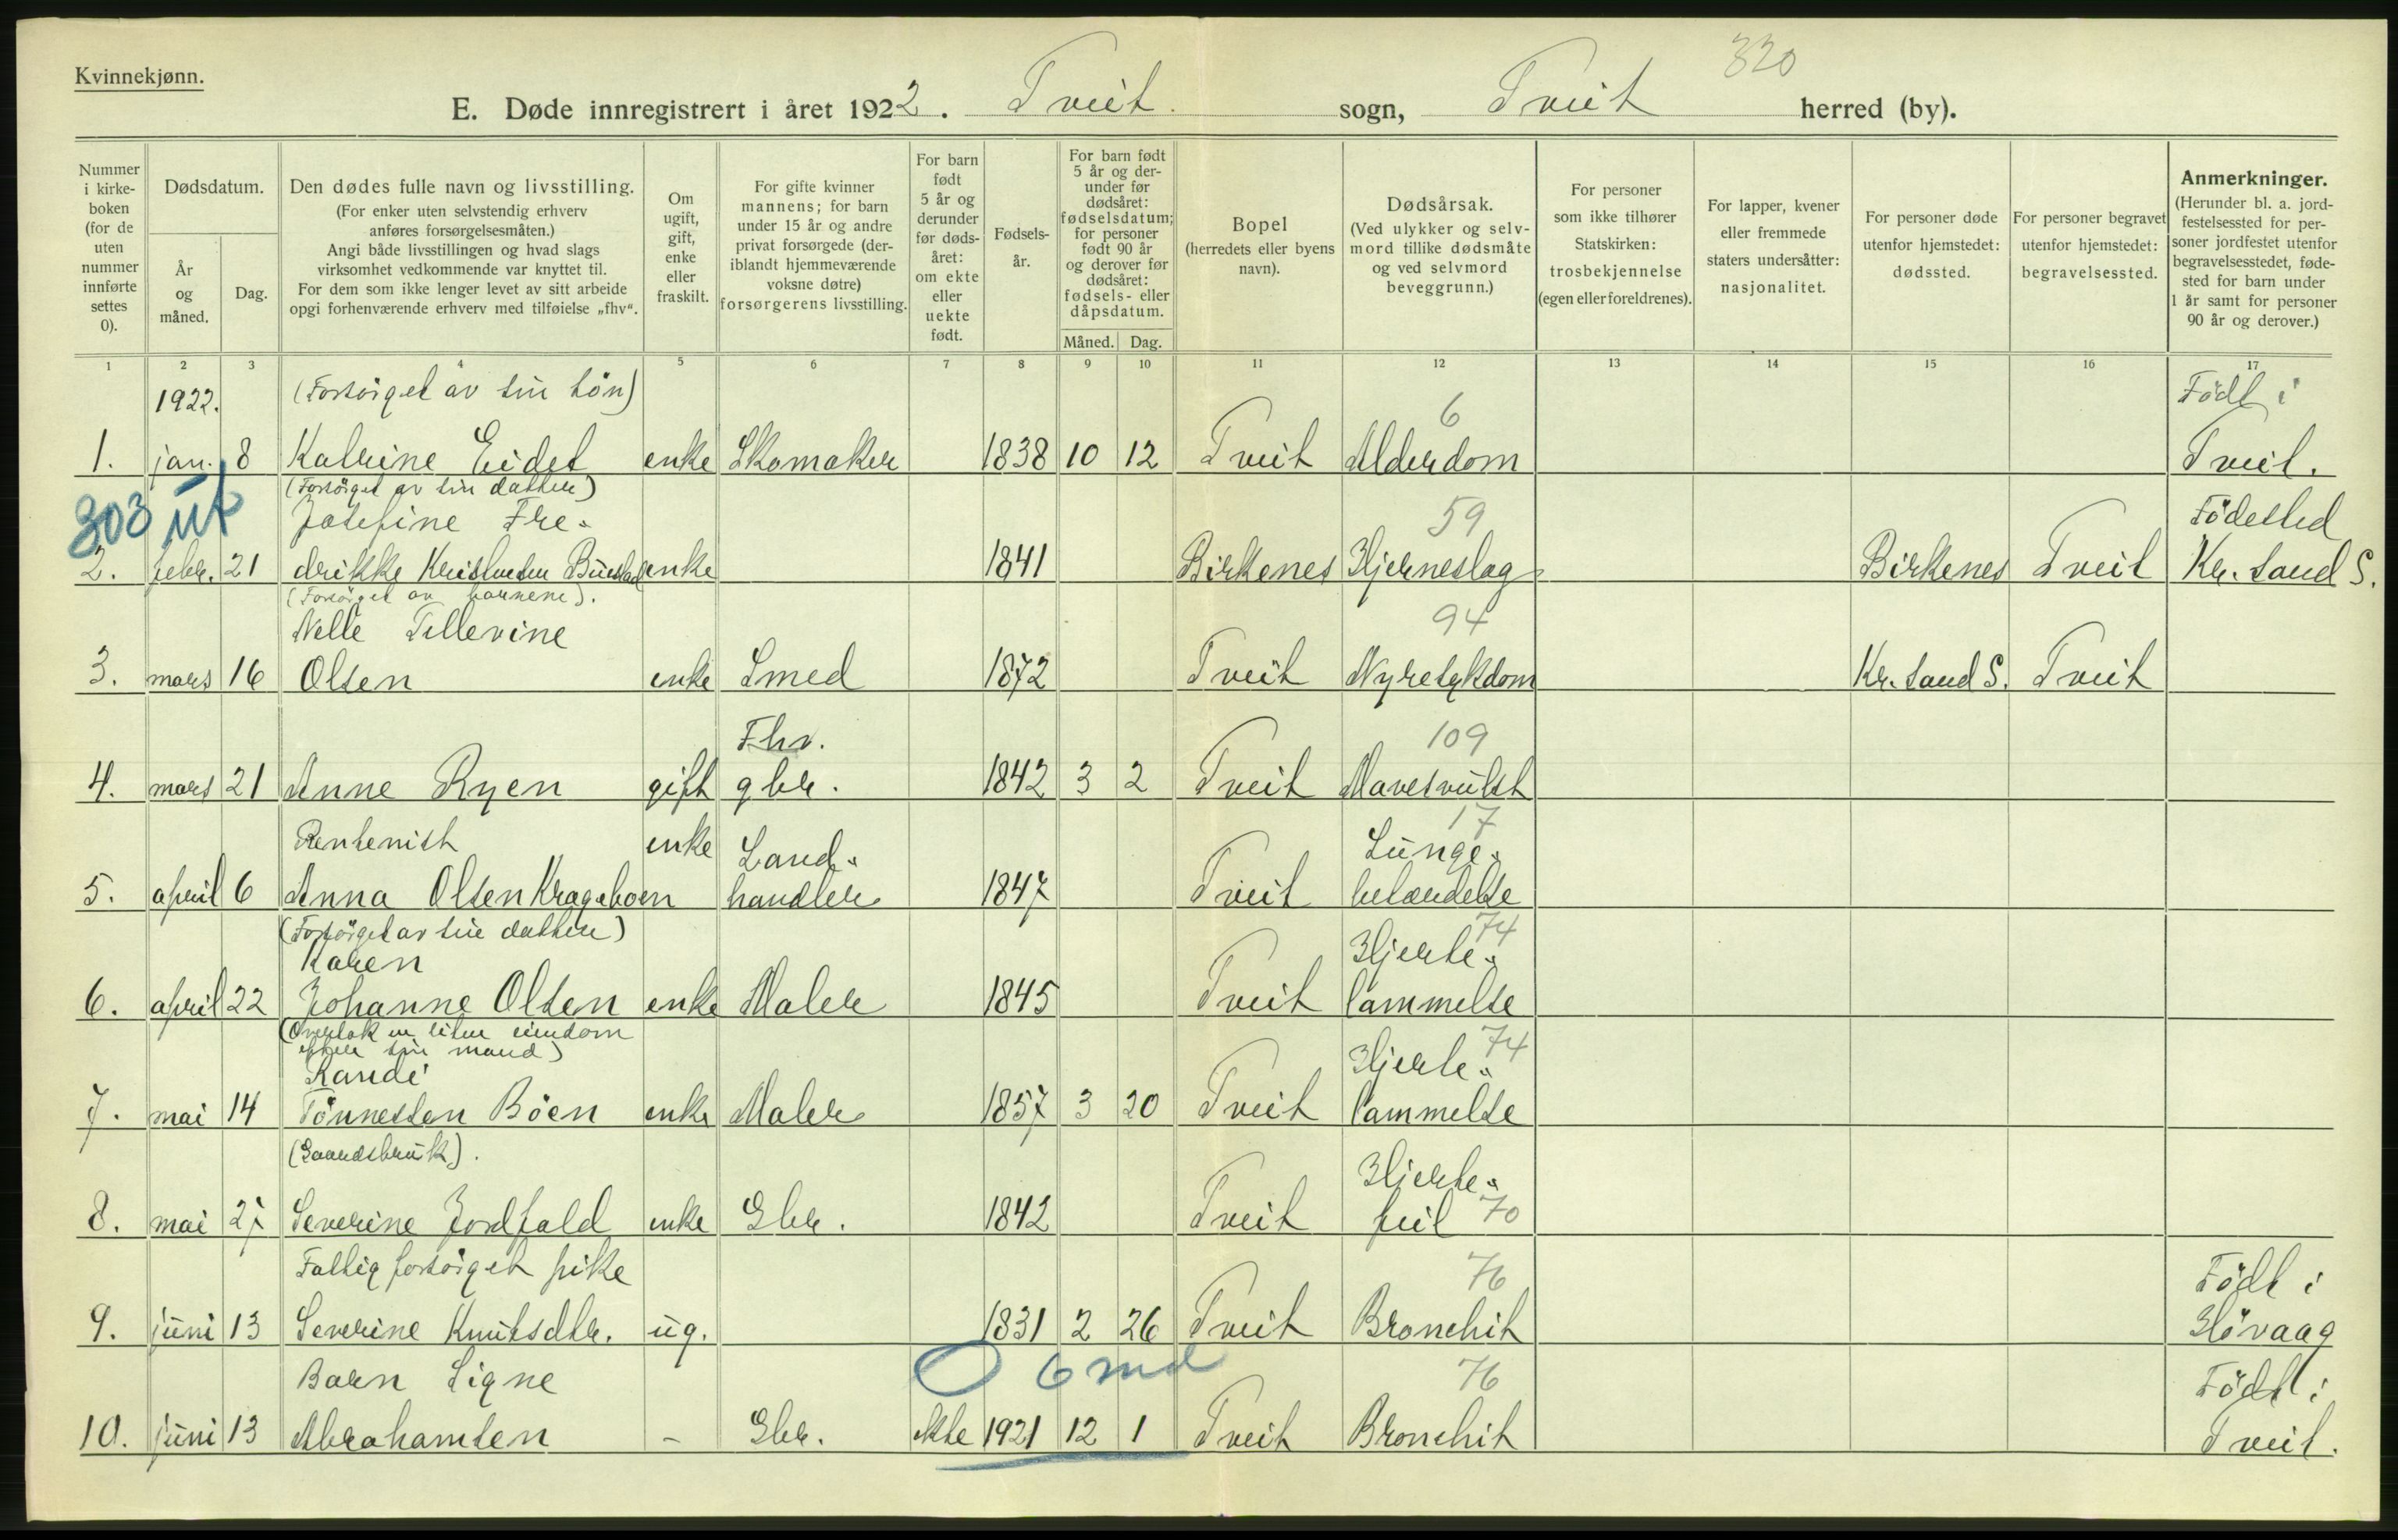 Kvinnekjønn.
320
E. Døde innregistrert i året 1922. Tveit sogn, Tveit herred (by).
Nummer i kirke-boken (for de uten nummer innførte settes 0).
Dødsdatum.
År og måned.
Dag.
Den dødes fulle navn og livsstilling.
(For enker uten selvstendig erhverv anføres forsørgelsesmåten.)
Angi både livsstillingen og hvad slags virksomhet vedkommende var knyttet til.
For dem som ikke lenger levet av sitt arbeide opgi forhenværende erhverv med tilføielse „fhv“.
Om ugift, gift, enke eller fraskilt.
For gifte kvinner mannens; for barn under 15 år og andre privat forsørgede (deriblandt hjemmeværende voksne døtre) forsørgerens livsstilling.
For barn født 5 år og derunder før døds-året: om ekte eller uekte født.
Fødsels-år.
For barn født 5 år og der-under før dødsåret: fødselsdatum; for personer født 90 år og derover før dødsåret: fødsels- eller dåpsdatum.
Måned. Dag.
Bopel (herredets eller byens navn).
Dødsårsak.
(Ved ulykker og selv-mord tillike dødsmåte og ved selvmord beveggrunn.)
For personer som ikke tilhører Statskirken: trosbekjennelse (egen eller foreldrenes).
For lapper, kvener eller fremmede staters undersåtter: nasjonalitet.
For personer døde utenfor hjemstedet: dødssted.
For personer begravet utenfor hjemstedet: begravelsessted.
Anmerkninger.
(Herunder bl. a. jord-festelsessted for per-soner jordfestet utenfor begravelsesstedet, føde-sted for barn under 1 år samt for personer 90 år og derover.)
1 2 3 4 5 6 7 8 9 10 11 12 13 14 15 16 17
1922. (Forsörget av sin sön) 6 Födt i
1. jan. 8 Katrine Eidet enke Skomaker 1838 10 12 Tveit Alderdom Tveit.
303 ut
(Forsörget av sin datter)
Josefine Fre- 59 Födested
2. febr. 21 drikke Kristensen Bueslad enke 1841 Birkenes Hjerneslag Birkenes Tveit Kr.sand S.
(Forsörget av barnene).
Nelle Tellevine 94
3. mars 16 Olsen enke Smed 1872 Tveit Nyresykdom Kr.sand S. Tveit
Fhv. 109
4. mars 21 Anne Ryen gift gbr. 1842 3 2 Tveit Mavesvulst
17
Rentenist enke Land- Lunge-
5. april 6 Anna Olsen Krageboen handler 1847 Tveit betændelse
(Forsörget av sin datter) 74
Karen Hjerte-
6. april 22 Johanne Olsen enke Maler 1845 Tveit lammelse
(Overtok en liten eiendom
efter sin mand) 74
Randi Hjerte-
7. mai 14 Tönnessen Böen enke Maler 1857 3 20 Tveit lammelse
(Gaardsbruk). Hjerte-
8. mai 27 Severine Jordfald enke Gbr. 1842 Tveit feil 70
Fattigforsörget pike 76 Födt i
9. juni 13 Severine Knutsdtr. ug. 1831 2 26 Tveit Bronchit Hövaag
6 md
Barn Signe 76 Födt i
10. juni 13 Abrahamsen - Gbr. ekte 1921 12 1 Tveit Bronchit Tveit.